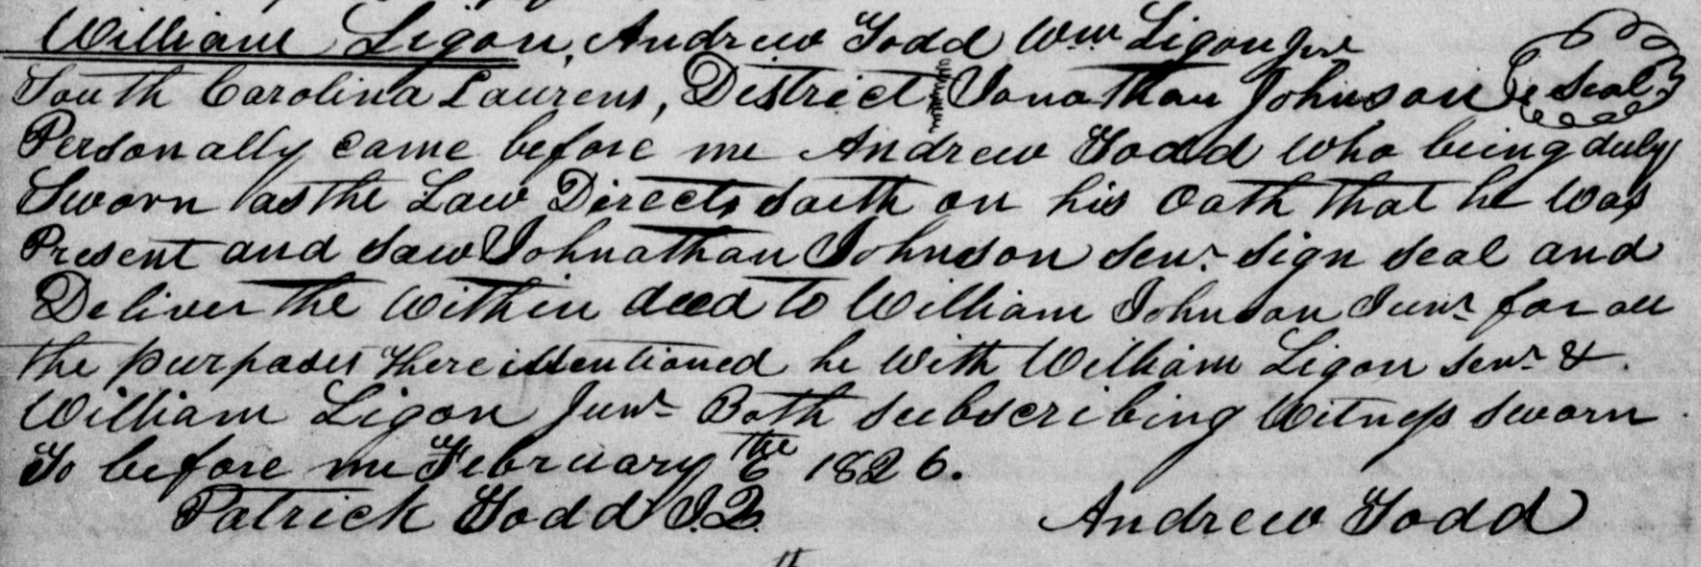 William Ligon, Andrew Todd Wm Ligon Jur
South Carolina Laurens, District Jonathan Johnson Seal
Personally came before me Andrew Todd who being duly
Sworn as the Law Directs saith on his Oath that he was
Present and saw Johnathan Johnson senr. sign seal and
Deliver the within deed to William Johnson Junr for all
the purposes there mentioned he with William Ligon senr &.
William Ligon Junr Both subscribing Witness sworn
To before me February the 6 1826.
Patrick Todd J.Q. Andrew Todd